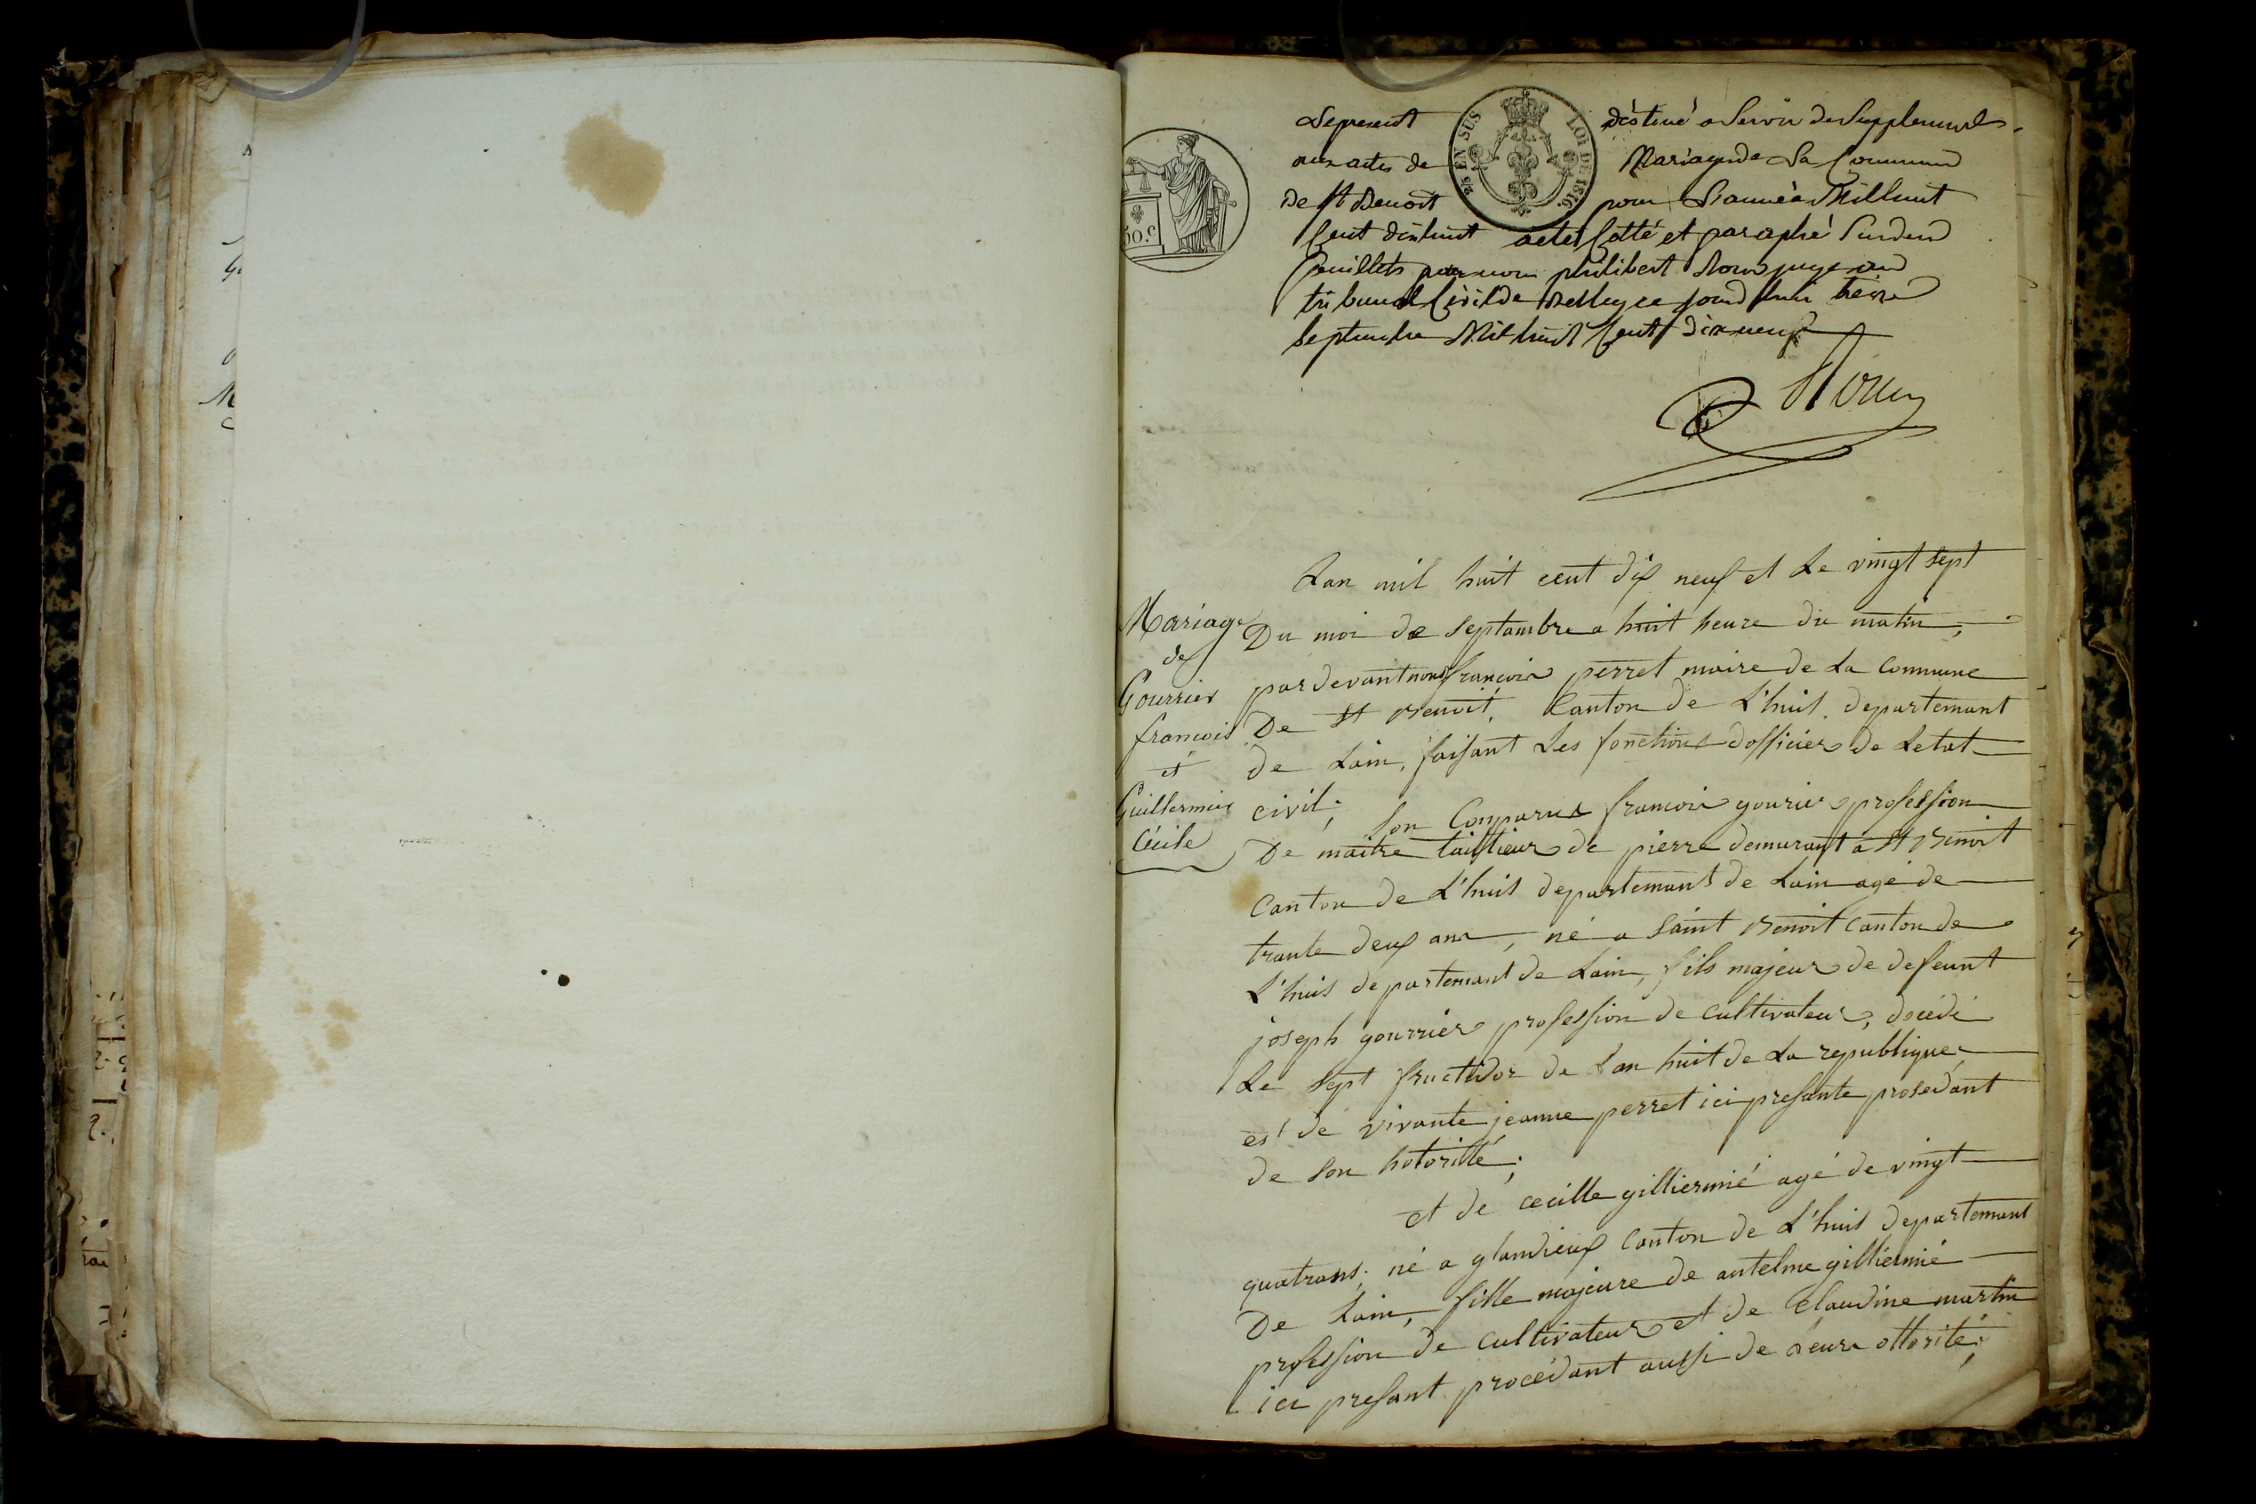 Le present destiné a Servir de Supplement
aux actes de Mariage de La Commune
de St Benoit pour L'année Mil huit
Cent dix huit actes Cotté et paraphé Sur deux
feuillets par nous philibert juge au
tribunal Civil de Belley ce jourd'hui treize
Septembre Mil huit Cent dix neuf
2/5 EN SUS
LOI DE 1816.
50.c
Lan mil huit cent dix neuf et Le vingt sept
Du moi de septambre a huit heure du matin,
par devant nous françois perret maire de La Commune
De St Benoit, Canton de L'huis, departemant
de Lain, faisant Les fonctions dofficier de Letat
civil; Son Comparus francois gourier profession
De maitre taillieur de pierre demurant a St Benoit
Canton de L'huis departemant de Lain agé de
trante deux ans, né a Saint Benoit Canton de
L'huis departemant de Lain, fils majeur de defeunt
joseph gourrier profession de cultivateur, décédé
Le sept fructidor de Lan huit de La republique
et de vivante jeanne perret ici presante prosedant
de son hotorité;
et de cecille gilliermié agé de vingt
quatrans, né a glandieux Canton de L'huis departemant
De Lain, fille majeure de antelme gilliermié
profession de cultivateur et de Claudine martin
ici presant procédant aussi de Leurs ottorité;
Mariage
de
Gourrier
francois
et
Guillermier
Cécile